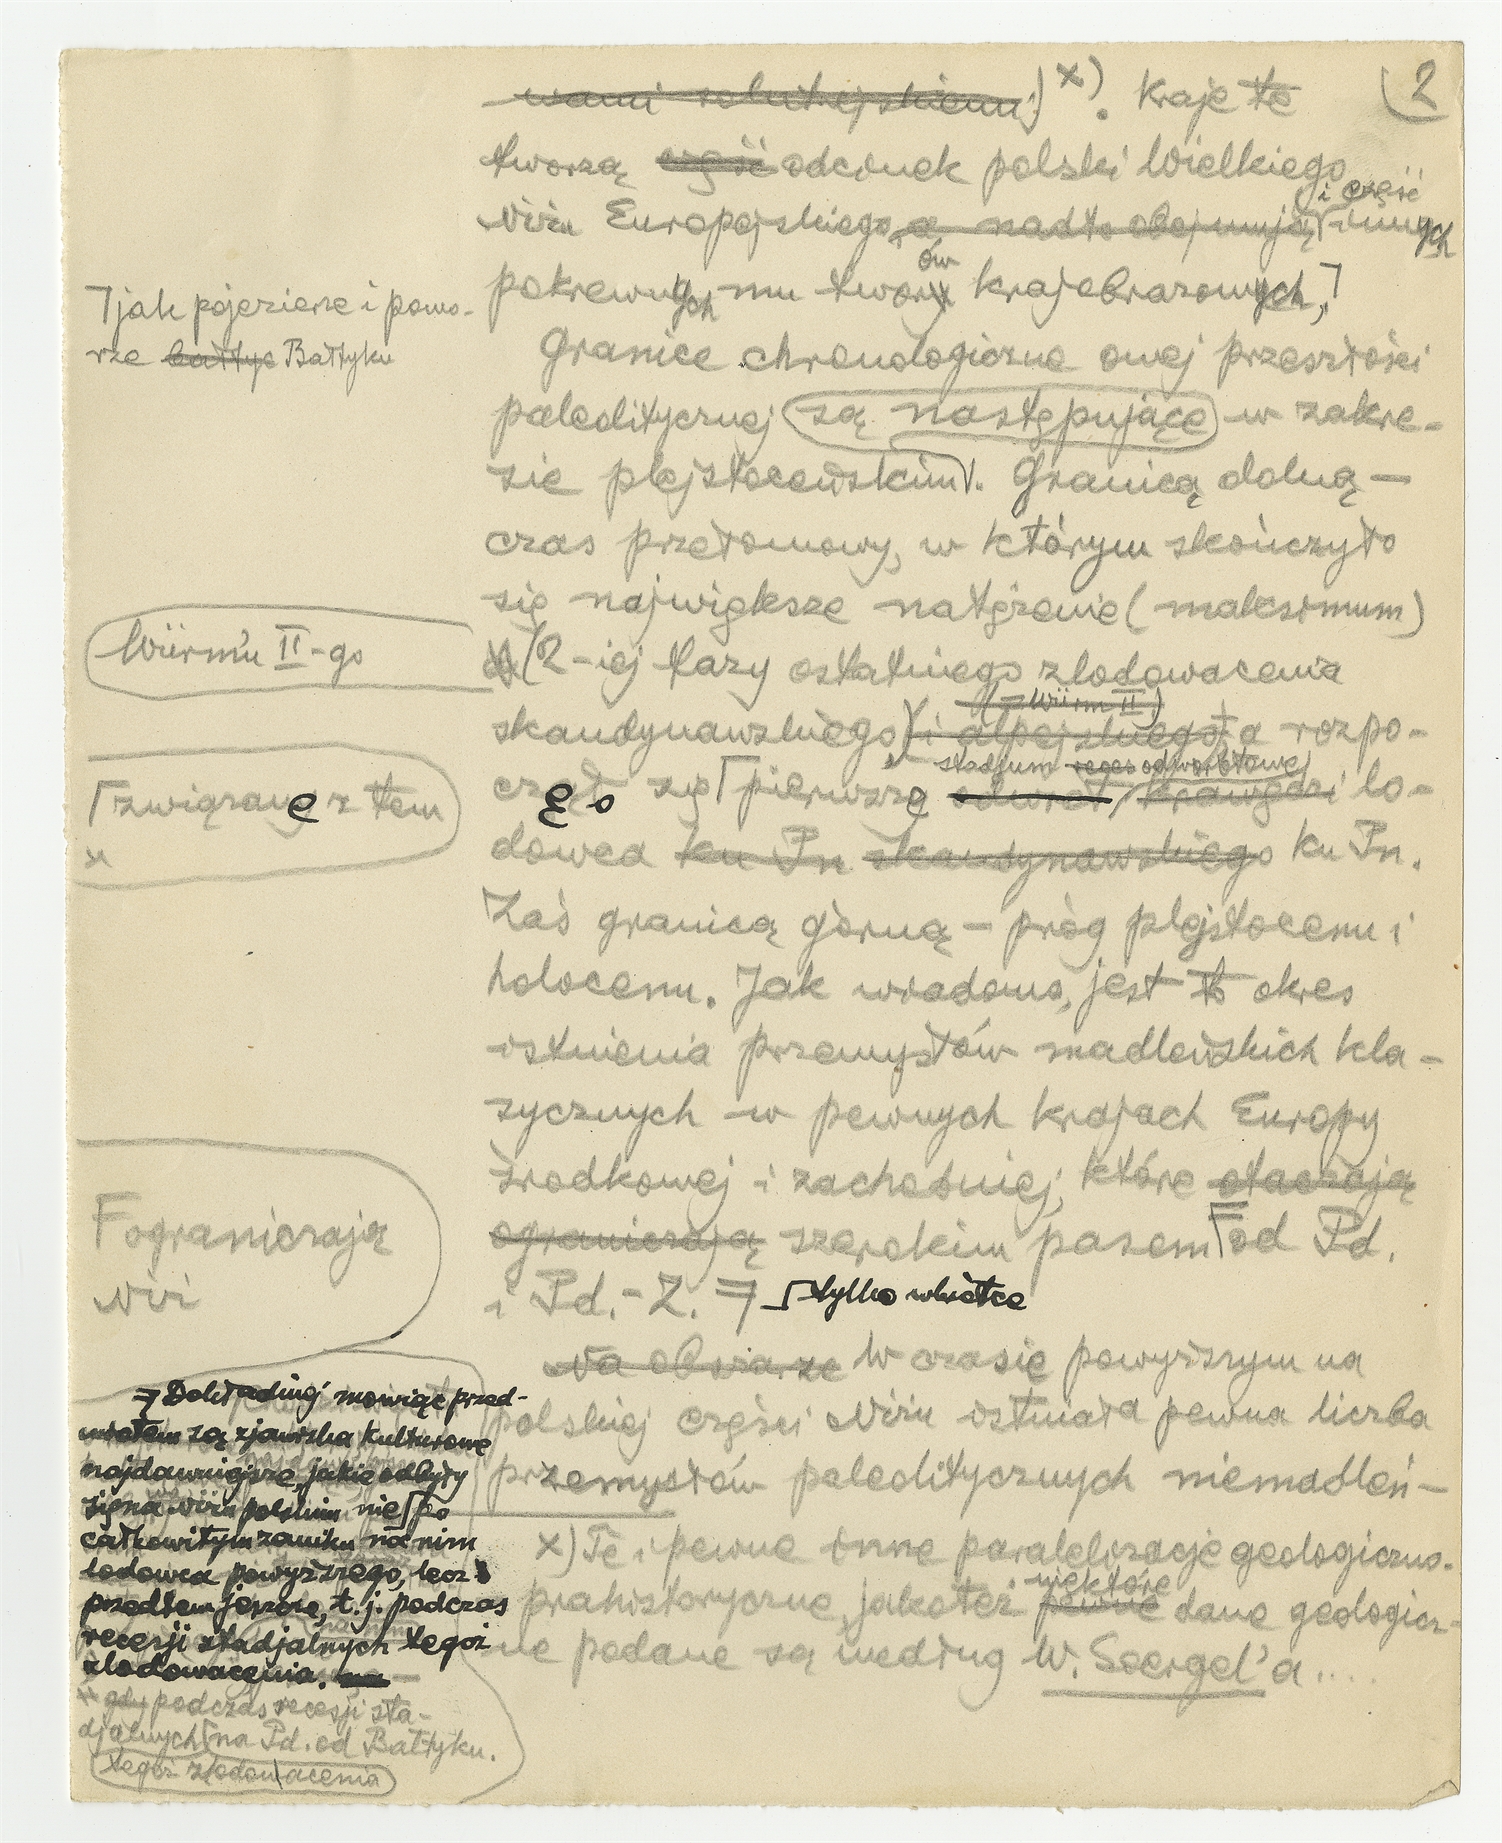 2
wami solutrejskiemi) x). Kraje te
tworzą część odcinek polski Wielkiego
Niżu Europejskiego, a nadto obejmują i część innych
pokrewnych mu tworów krajobrazowych,
jak pojezierze i pomo-
rze bałtyc Bałtyku
Granice chronologiczne owej przeszłości
paleolitycznej są następujące w zakre-
sie plejstoceńskim. Granicą dolną —
czas przełomowy, w którym skończyło
się największe natężenie (maksimum)
Würm'u II-go
(2-iej fazy ostatniego zlodowacenia
(= Würm II)
skandynawskiego) i alpejskiego, a rozpo-
stadjum odwrotowe
częło się pierwsze odwrót krawędzi lo-
związane z tem
dowca ku Pn skandynawskiego ku Pn.
Zaś granicą górną — próg plejstocenu i
holocenu. Jak wiadomo, jest to okres
istnienia przemysłów madleńskich kla-
sycznych w pewnych krajach Europy
środkowej i zachodniej, które otaczają
ograniczają szerokim pasem od Pd.
ograniczają
Niż
i Pd.-Z. tylko wkrótce
Na obszarze W czasie powyższym na
polskiej części Niżu istniała pewna liczba
przemysłów paleolitycznych niemadleń-
Dokładniej mówiąc przed-
miotem są zjawiska kulturowe
najdawniejsze, jakie odbyły
się na Niżu polskim nie po
całkowitym zaniku na nim
lodowca powyższego, lecz
przedtem jeszcze, t. j. podczas
recesji stadjalnych tegoż
zlodowacenia.
gdy podczas recesji sta-
djalnych na Pd. od Bałtyku.
tegoż zlodowacenia
x) Te i pewne inne paralelizacje geologiczno-
prahistoryczne, jakoteż pewne niektóre dane geologicz-
ne podane są według W. Soergel'a ....